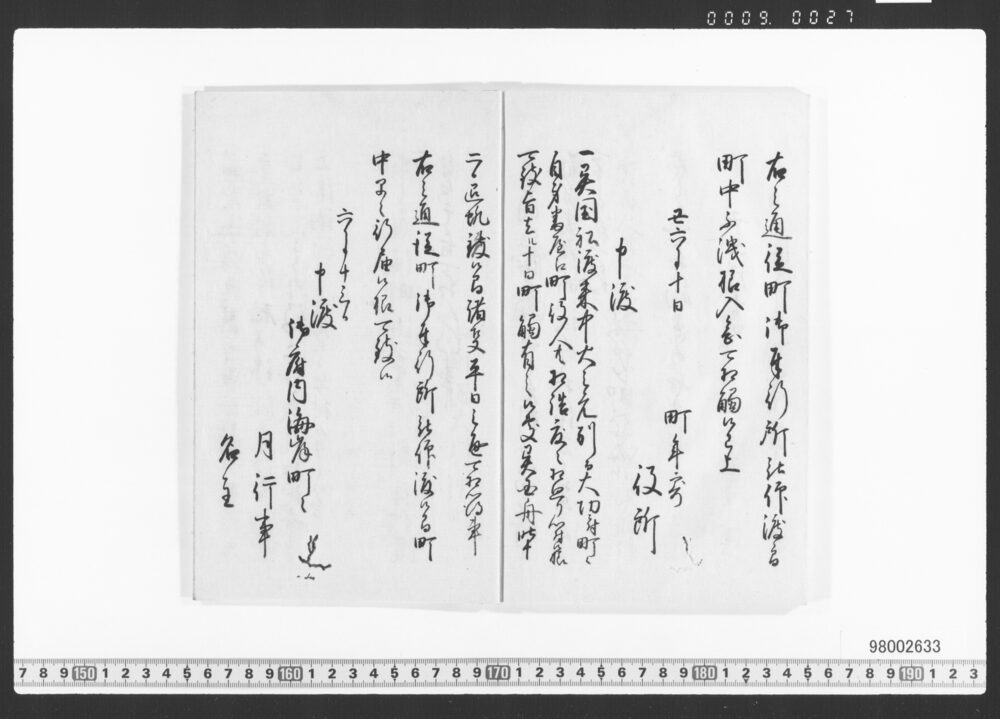 0009. 0027
右之通従町御奉行所被仰渡候間
町中不洩様入念可相触候已上
丑六月十日 町年寄
役所
申渡
一異国船渡来中火之元別而大切ニ付町々
自身番屋江町役人共相詰度々相廻り候様
可致旨去ル十日町触有之候処異国舟
出帆致候間諸事平日之通可相心得事
右之通従町御奉行所被仰渡候間町
中早々行届候様可致候
六月十三日
申渡
御府内海岸町々
月行事
名主
98002633
7 8 9 150 1 2 3 4 5 6 7 8 9 160 1 2 3 4 5 6 7 8 9 170 1 2 3 4 5 6 7 8 9 180 1 2 3 4 5 6 7 8 9 190 1 2 3